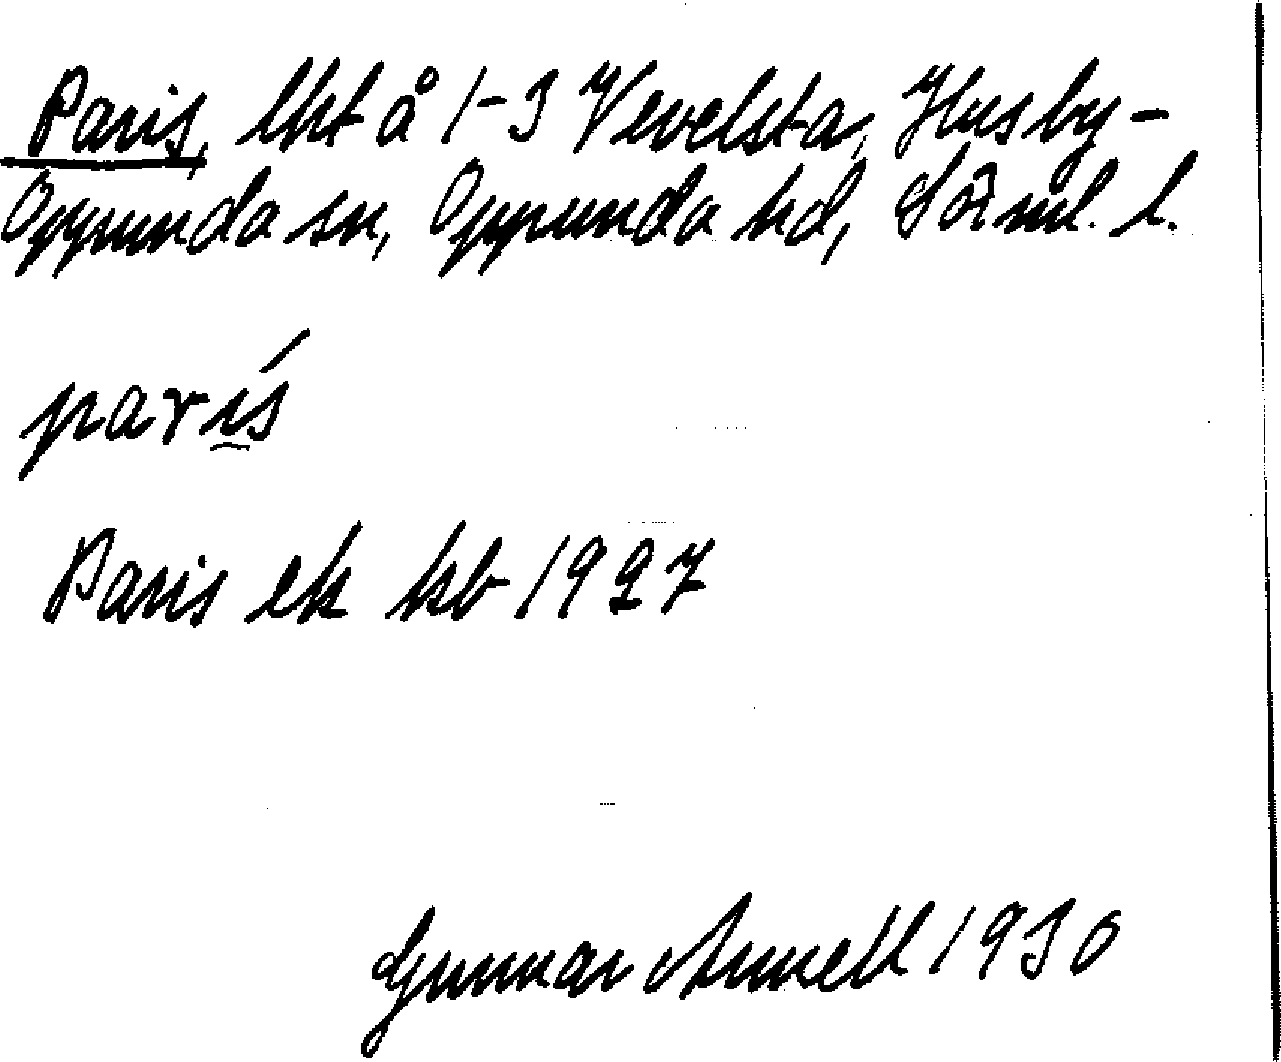 Paris, lht å 1-3 Vevelsta, Husby-
Oppunda sn, Oppunda hd, Sörml. l.
parís
Paris ek kb 1927
Gunnar Arnell 1930